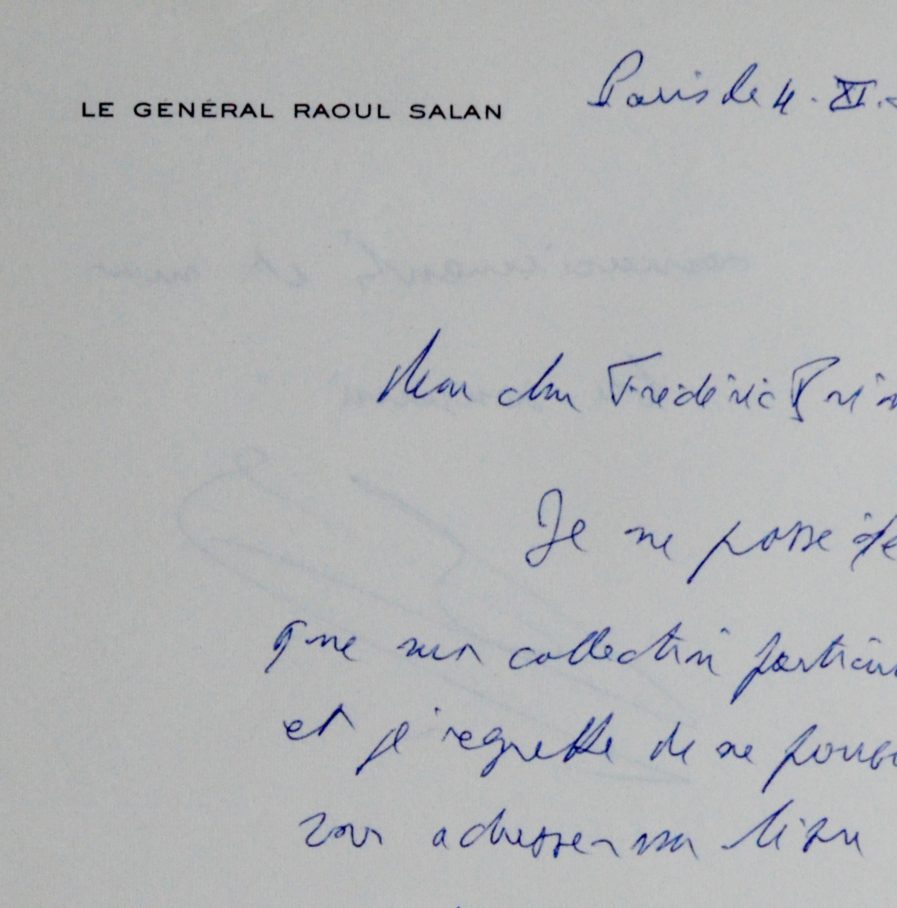 LE GÉNÉRAL RAOUL SALAN
Paris le 4. XI.
Mon cher Frédéric
Je ne possède
que mon collection particul
et je regrette de ne pouvo
vous adresser mon livre